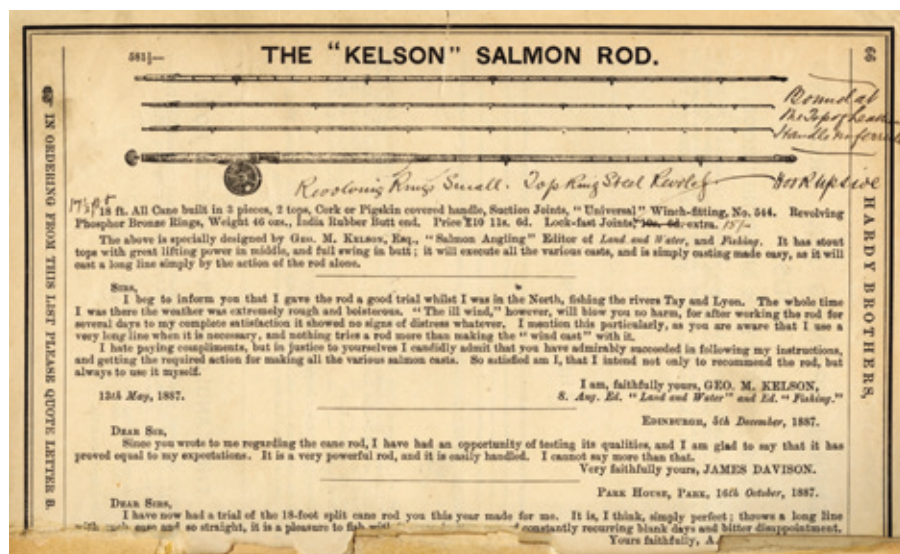 581/-
THE "KELSON" SALMON ROD.
66
Bound at
the Top of
Handle no
Revolving Rings Small. Top Ring Steel
Hook Upside
18 ft. All Cane built in 3 pieces, 2 tops, Cork or Pigskin covered handle, Suction Joints, "Universal" Winch-fitting, No. 544. Revolving
Phosphor Bronze Rings, Weight 46 ozs., India Rubber Butt end. Price £10 11s. 6d. Lock-fast Joints, 10s. 6d. extra. 15/-
The above is specially designed by GEO. M. KELSON, ESQ., "Salmon Angling" Editor of Land and Water, and Fishing. It has stout
tops with great lifting power in middle, and full swing in butt; it will execute all the various casts, and is simply casting made easy, as it will
cast a long line simply by the action of the rod alone.
SIRS,
I beg to inform you that I gave the rod a good trial whilst I was in the North, fishing the rivers Tay and Lyon. The whole time
I was there the weather was extremely rough and boisterous. "The ill wind," however, will blow you no harm, for after working the rod for
several days to my complete satisfaction it showed no signs of distress whatever. I mention this particularly, as you are aware that I use a
very long line when it is necessary, and nothing tries a rod more than making the "wind cast" with it.
I hate paying compliments, but in justice to yourselves I candidly admit that you have admirably succeeded in following my instructions,
and getting the required action for making all the various salmon casts. So satisfied am I, that I intend not only to recommend the rod, but
always to use it myself.
I am, faithfully yours, GEO. M. KELSON,
13th May, 1887. S. Ang. Ed. "Land and Water" and Ed. "Fishing."
EDINBURGH, 5th December, 1887.
DEAR SIR,
Since you wrote to me regarding the cane rod, I have had an opportunity of testing its qualities, and I am glad to say that it has
proved equal to my expectations. It is a very powerful rod, and it is easily handled. I cannot say more than that.
Very faithfully yours, JAMES DAVISON.
PARK HOUSE, PARK, 16th October, 1887.
DEAR SIRS,
I have now had a trial of the 18-foot split cane rod you this year made for me. It is, I think, simply perfect; throws a long line
with such ease and so straight, it is a pleasure to fish with constantly recurring blank days and bitter disappointment.
Yours faithfully, A.
IN ORDERING FROM THIS LIST PLEASE QUOTE LETTER B.
HARDY BROTHERS,